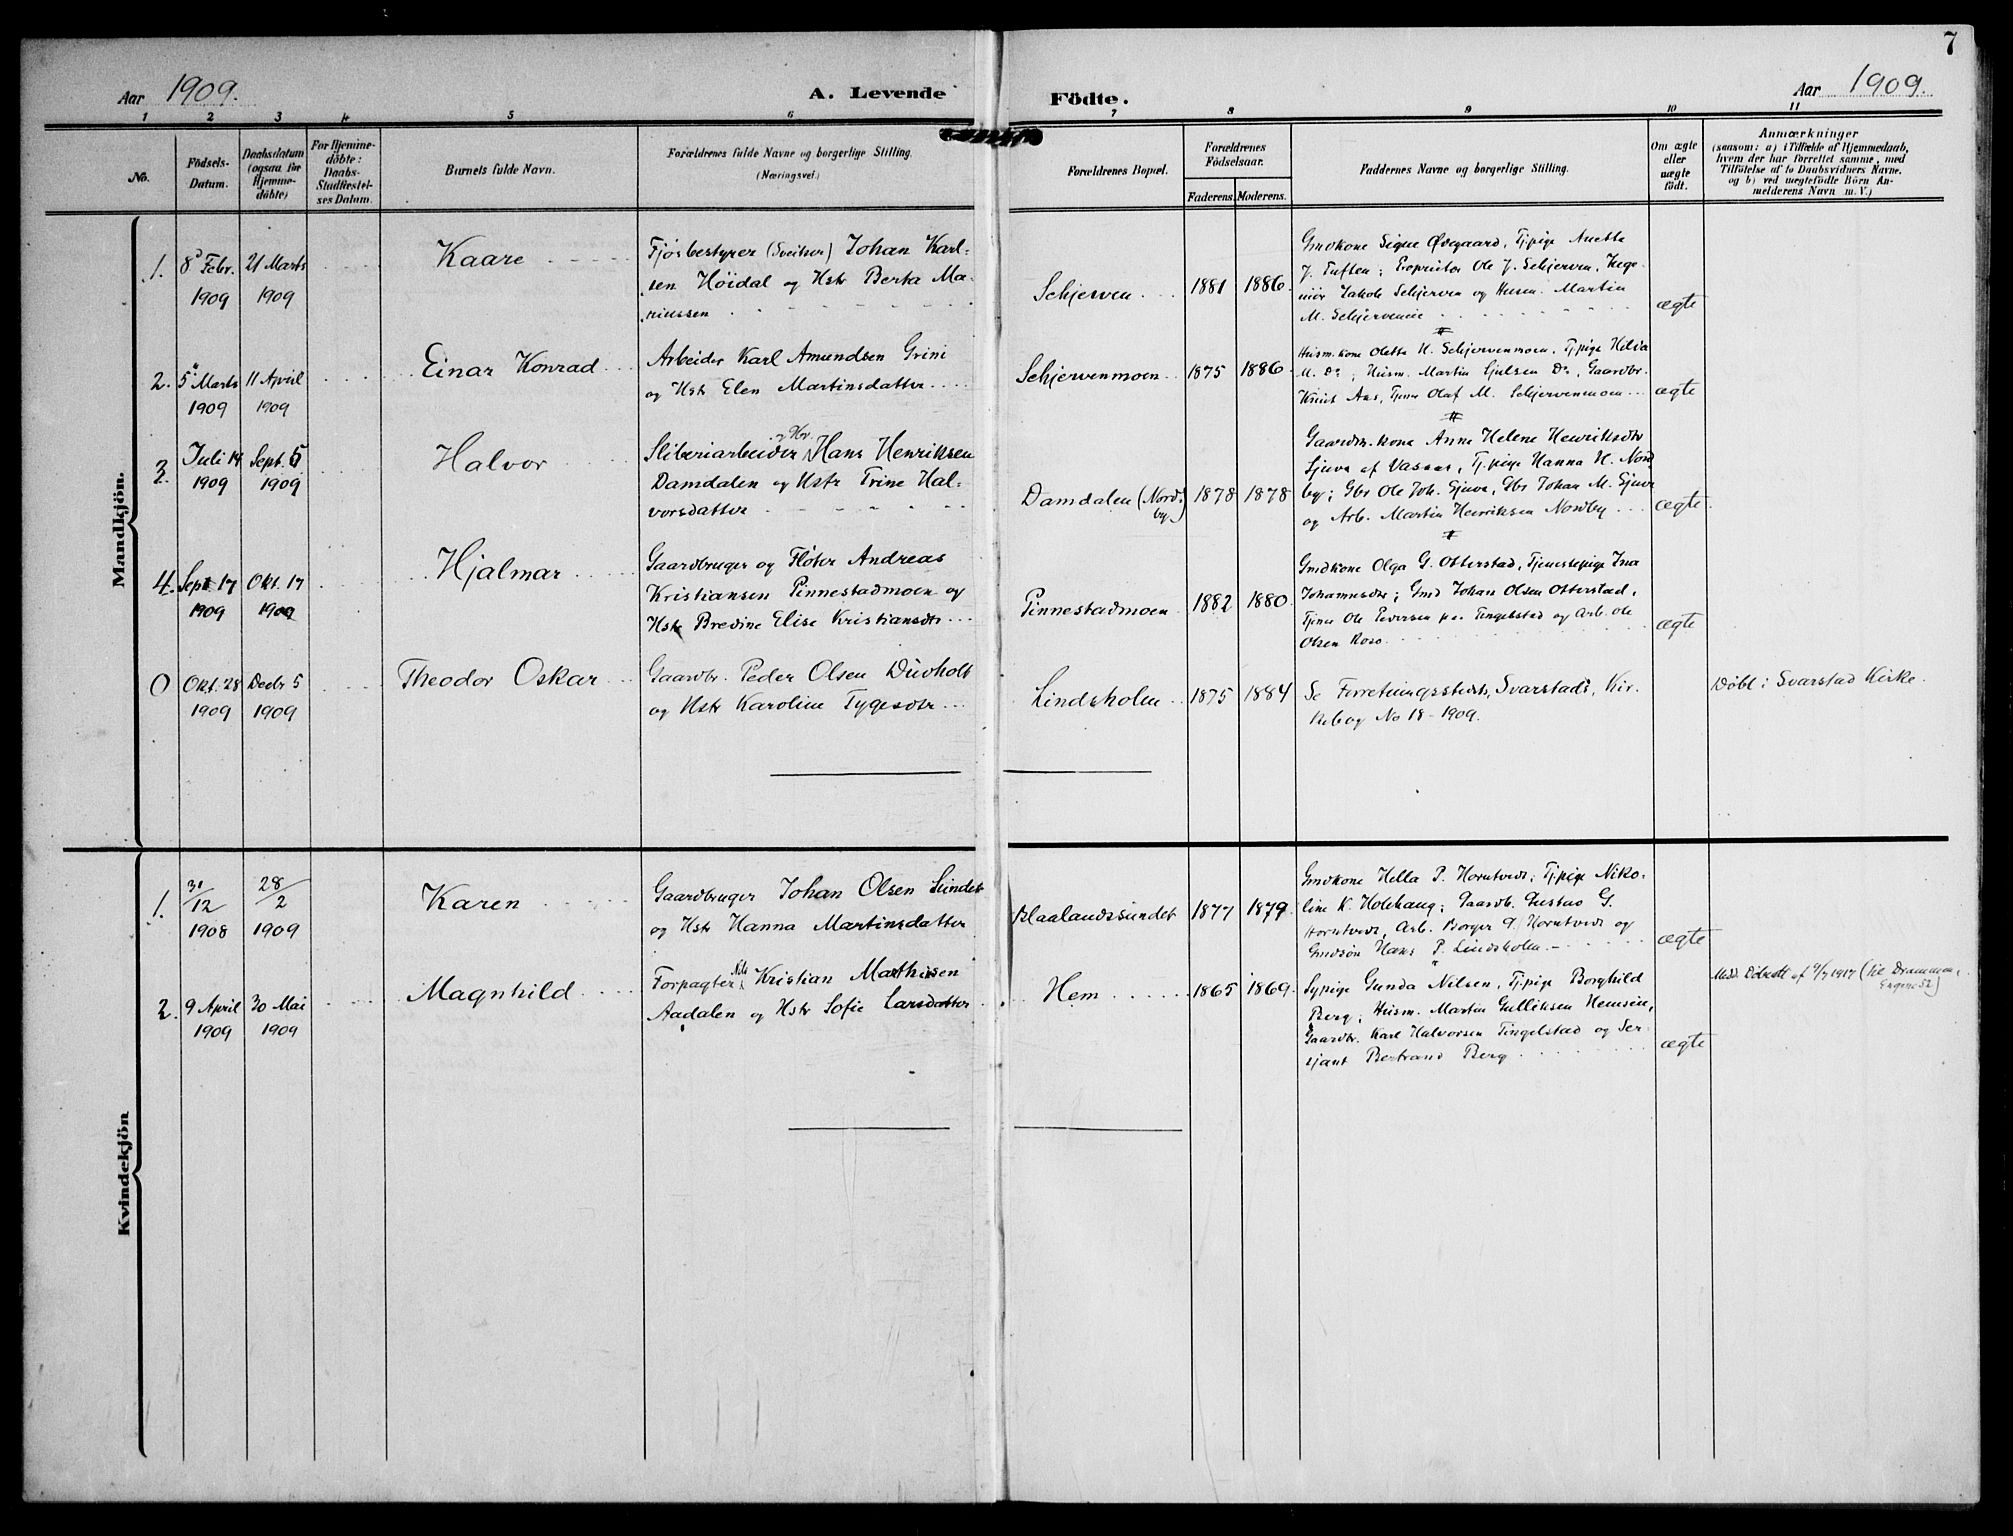 7
Aar 1909.
A. Levende
Födte.
Aar 1909.
1 2 3 4 5 6 7 8 9 10 11
No.
Födsels-Datum.
Daabsdatum (ogsaa for Hjemme-döbte)
For Hjemme-döbte: Daabs-Stadfæstel-ses Datum.
Barnets fulde Navn.
Forældrenes fulde Navne og borgerlige Stilling.
(Næringsvei.)
Forældrenes Bopæl.
Forældrenes Födselsaar.
Faderens. Moderens.
Faddernes Navne og borgerlige Stilling.
Om ægte eller uægte födt.
Anmærkninger
(saasom: a) i Tilfælde af Hjemmedaab,
hvem der har forrettet samme, med
Tilföielse af to Daabsvidners Navne.
og b) ved uægtefödte Börn An-
melderens Navn m. V.)
Mandkjön.
1. 8 Febr. 1909
21 Marts 1909
Kaare
Fjösbestyrer (Sveitser) Johan Karl-
sen Höidal og Hstr Berta Ma-
riussen
Schjerven
1881 1886
Gmdkone Signe Øvegaard, Tj.pige Anetta
J. Tuften; Proprietær Ole J. Schjerven, Inge-
niör Jakob Schjerven og Husm. Martin
M. Schjerveneie
ægte
2. 5 Marts 1909
11 April 1909
Einar Konrad
Arbeider Karl Amundsen Grini
og Hstr Elen Martinsdatter
Schjervenmoen
1875 1886
Husm.kone Oletta H. Schjervenmoen, Tj.pige Helia
M. Do; Husm. Martin Gulsen Do, Gaardbr.
Knut Aas, Tjener Olaf M. Schjervenmoen
ægte
3. Juli 14 1909
Sept. 5 1909
Halvor
og Gbr.
Sliberiarbeider Hans Henriksen
Damdalen og Hstr Trine Hal-
vorsdatter
Damdalen (Nord-
by)
1878 1878
Gaardm.kone Anne Helene Henriksdtr
Gjuva af Vassaas, Tj.pige Hanna H. Nord
by; Gbr Ole Joh. Gjuva, Gbr Johan M. Gjuva
og Arb. Martin Henriksen Nordby
ægte
4. Sept 17 1909
Okt. 17 1909
Hjalmar
Gaardbruger og Flöter Andreas
Kristiansen Pinnestadmoen og
Hstr Bredine Elise Kristiansdtr
Pinnestadmoen
1882 1880
Gmdkone Olga G. Otterstad, Tjenestepige Ina
Johannesdtr; Gmd Johan Olsen Otterstad,
Tjener Ole Pedersen paa Tingelstad og Arb. Ole
Olsen Roso
ægte
0 Okt. 28 1909
Decbr 5 1909
Theodor Oskar
Gaardbr. Peder Olsen Duvholt
og Hstr Karoline Tygesdtr
Lindsholm
1875 1884
Se Forretningsstedets, Svarstads, Kir-
kebog No 18 - 1909.
Döbt i Svarstad Kirke.
Kvindekjön
1. 31/12 1908
28/2 1909
Karen
Gaardbruger Johan Olsen Sundet
og Hstr Hanna Martinsdatter
Blaalandssundet
1877 1879
Gmdkone Hella P. Horntvedt; Tj.pige Niko-
line K. Holehaug; Gaardb. Gustav G.
Horntvedt, Arb. Borger G. Horntvedt og
Gmdsön Hans P. Lindsholm
ægte
2. 9 April 1909
30 Mai 1909
Magnhild
Nils
Forpagter Kristian Mathisen
Aadalen og Hstr Sofie Larsdatter
Hem
1865 1869
Sypige Gunda Nilsen, Tj.pige Borghild
Berg, Husm. Martin Gulliksen Hemseie,
Gaardbr. Karl Halvorsen Tingelstad og Ser-
sjant Bertrand Berg
ægte
(til Drammen,